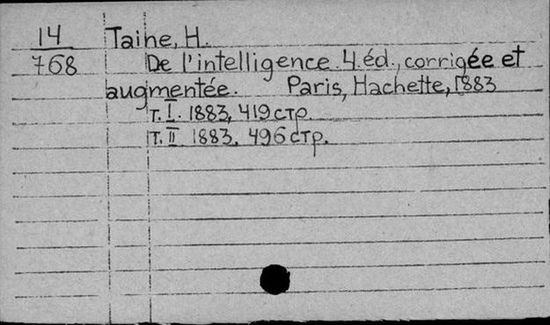 14 Taine, H.
768 De l'intelligence. 4. éd., corrigée et
augmentée. Paris, Hachette, 1883
т. I. 1883, 419 стр.
т. II 1883. 496 стр.